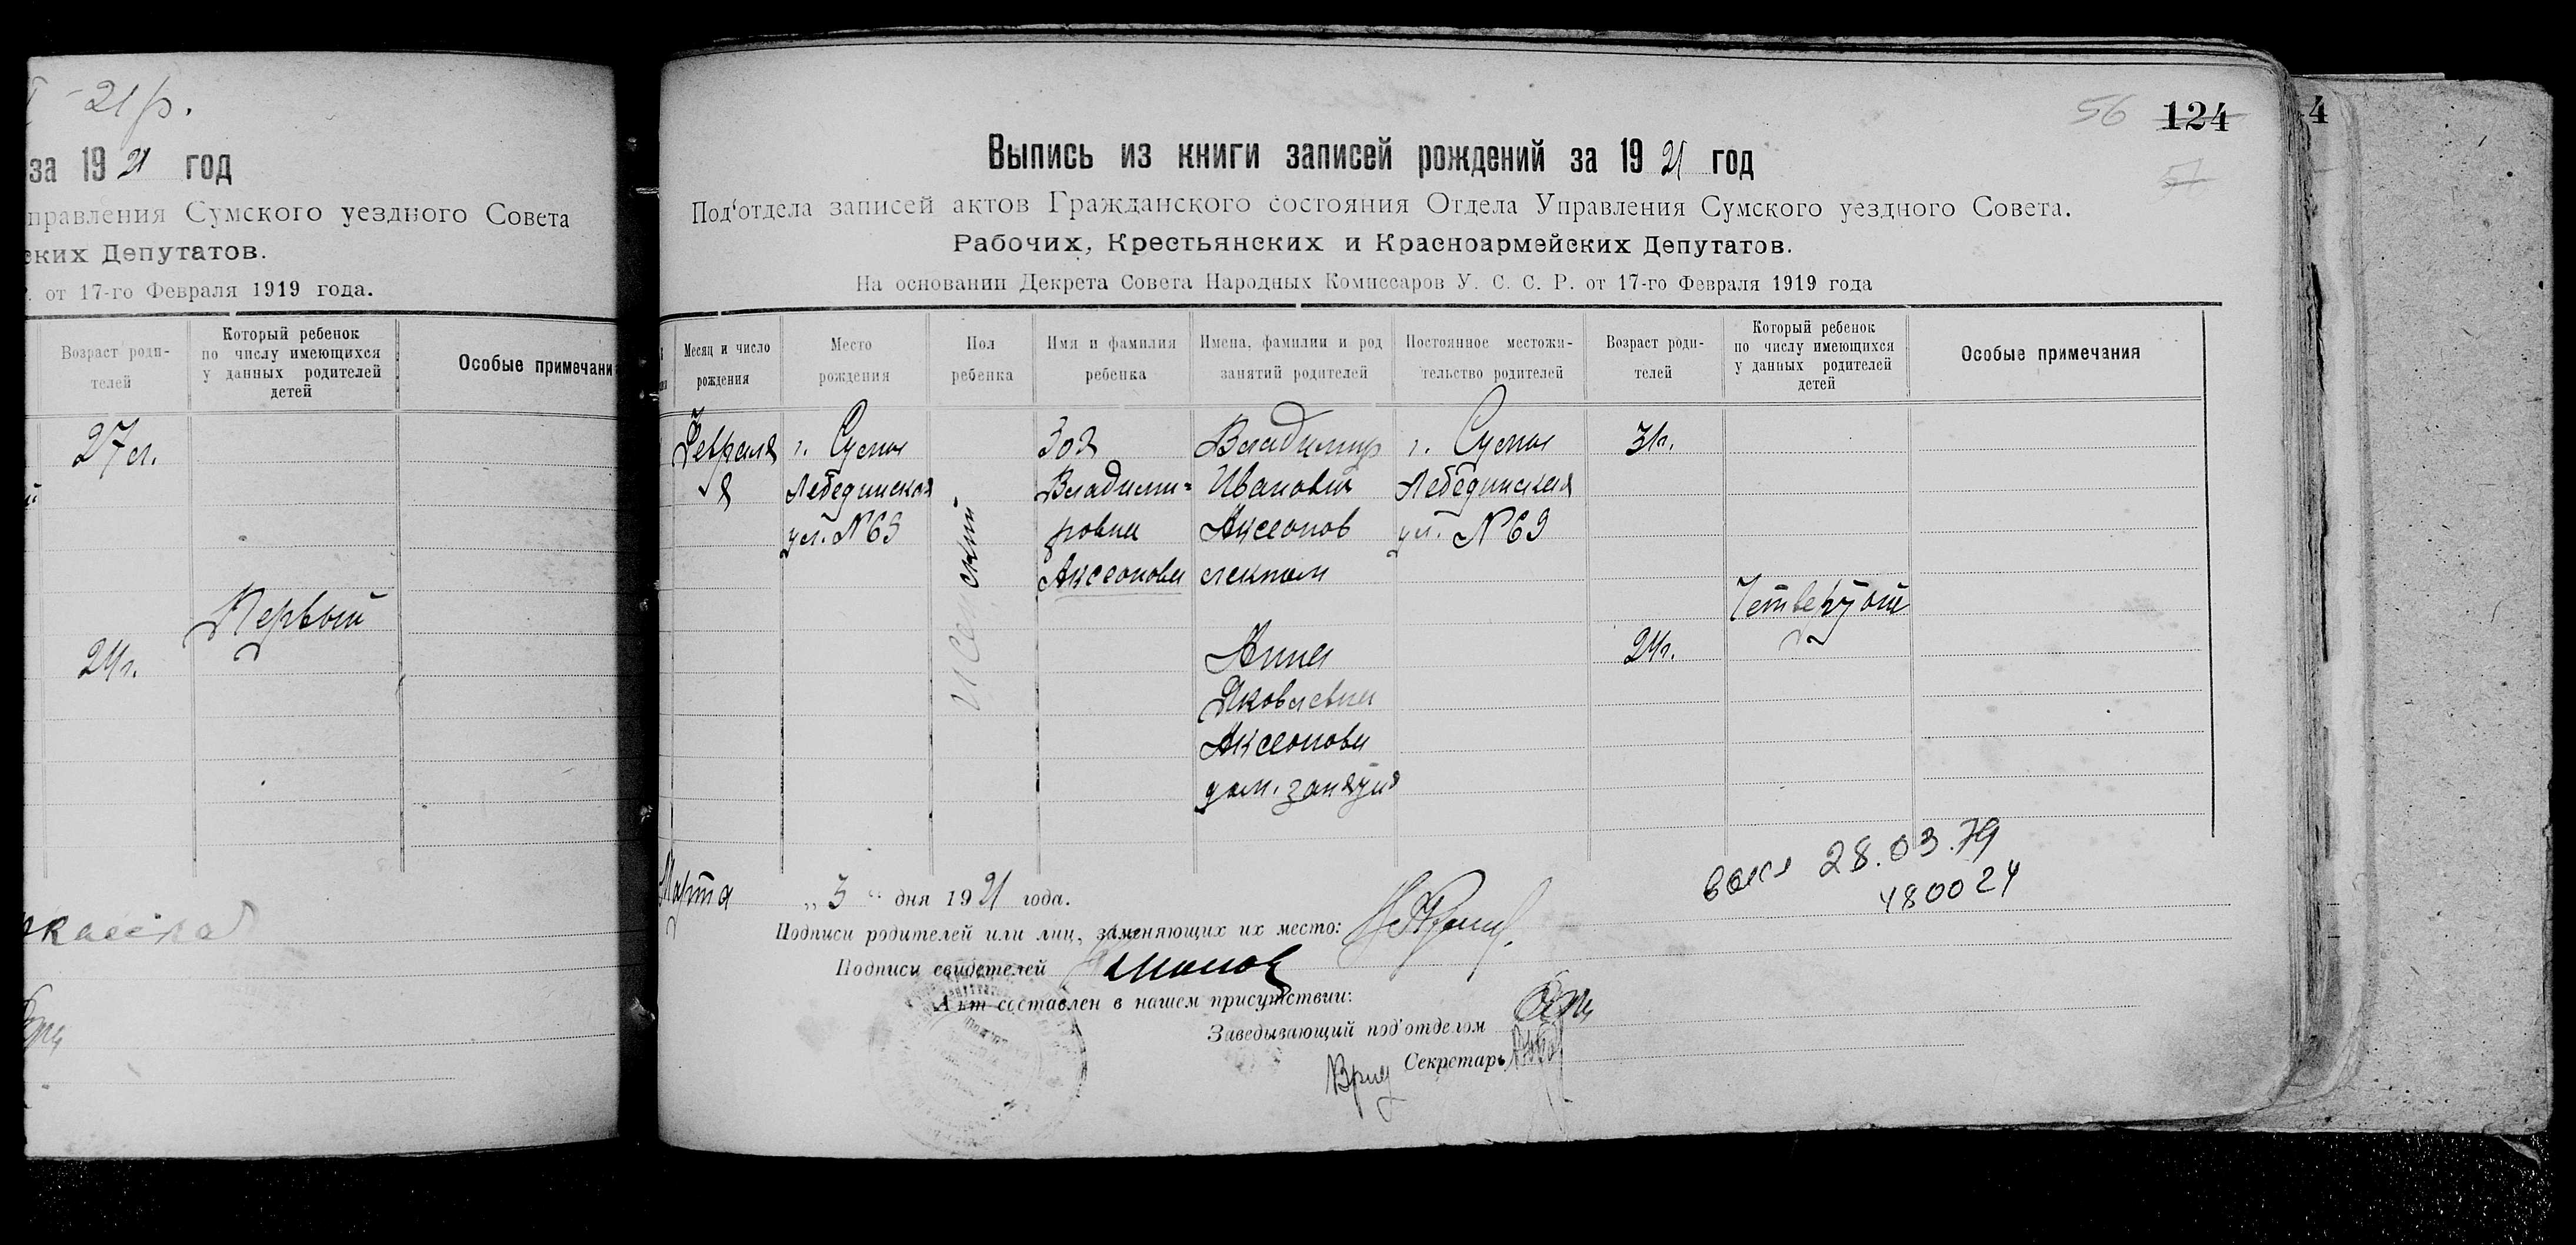 -21 р.
за 1921 год
правления Сумского уездного Совета
ских Депутатов.
от 17-го Февраля 1919 года.
Возраст роди-
телей
Который ребенок
по числу имеющихся
у данных родителей
детей
Особые примечани
27 л.
Первый
24 г.
56 124
57
4
Выпись из книги записей рождений за 1921 год
Под‘отдела записей актов Гражданского состояния Отдела Управления Сумского уездного Совета.
Рабочих, Крестьянских и Красноармейских Депутатов.
На основании Декрета Совета Народных Комиссаров У. С. С. Р. от 17-го Февраля 1919 года
Месяц и число
рождения
Место
рождения
Пол
ребенка
Имя и фамилия
ребенка
Имена, фамилии и род
занятий родителей
Постоянное местожи-
тельство родителей
Возраст роди-
телей
Который ребенок
по числу имеющихся
у данных родителей
детей
Особые примечания
Февраля
г. Сумы
Лебединская
ул. № 69
женский
Зоя
Владими=
ровна
Аксеонова
Владимир
Иванович
Аксеонов
г. Сумы
Лебединская
ул. № 69
31 г.
Анна
Яковлевна
Аксеонова
дом. занятия
24 г.
Четвертый
Марта „ 3 “ дня 1921 года.
28.03.79
480024
Подписи родителей или лиц, заменяющих их место:
Подписи свидетелей
Акт составлен в нашем присутствии:
Заведывающий под'отделом
Врид Секретарь